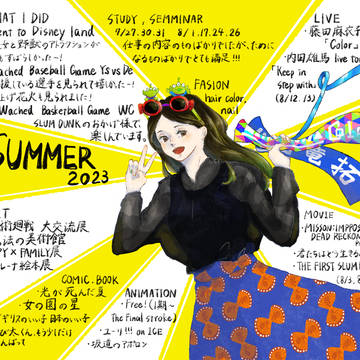 HAT I DID
ent to Disney land
女と野獣のアトラクションが
ached Baseball Game Ys vs De
Wached Basketball Game WC
SLUM DUNKのおかげ様で、
楽しんでいます。
STUDY, SEMMINAR
7/27.30.31 8/1.17.24.26
仕事の内容のものばかりでしたが、ために
なるものばかりでとても満足!!!
FASION
hair color.
nail
LIVE
・藤田麻衣子
「Color」
・内田雄馬 live tou
「Keep in
step with」
(8/12.13)
SUMMER
2023
術廻戦 大交流展
法の美術館
Y×FAMILY展
レーナ絵本展
COMIC. BOOK
・光が死んだ夏
・女の園の星
ANIMATION
・Free!(1期~
the Final stroke)
・ユーリ!!! on ICE
・坂道のアポロン
MOVIE
・MISSON:IMPOSS
DEAD RECKON
・君たちはどう生きる
・THE FIRST SLUM
(8/3, 8